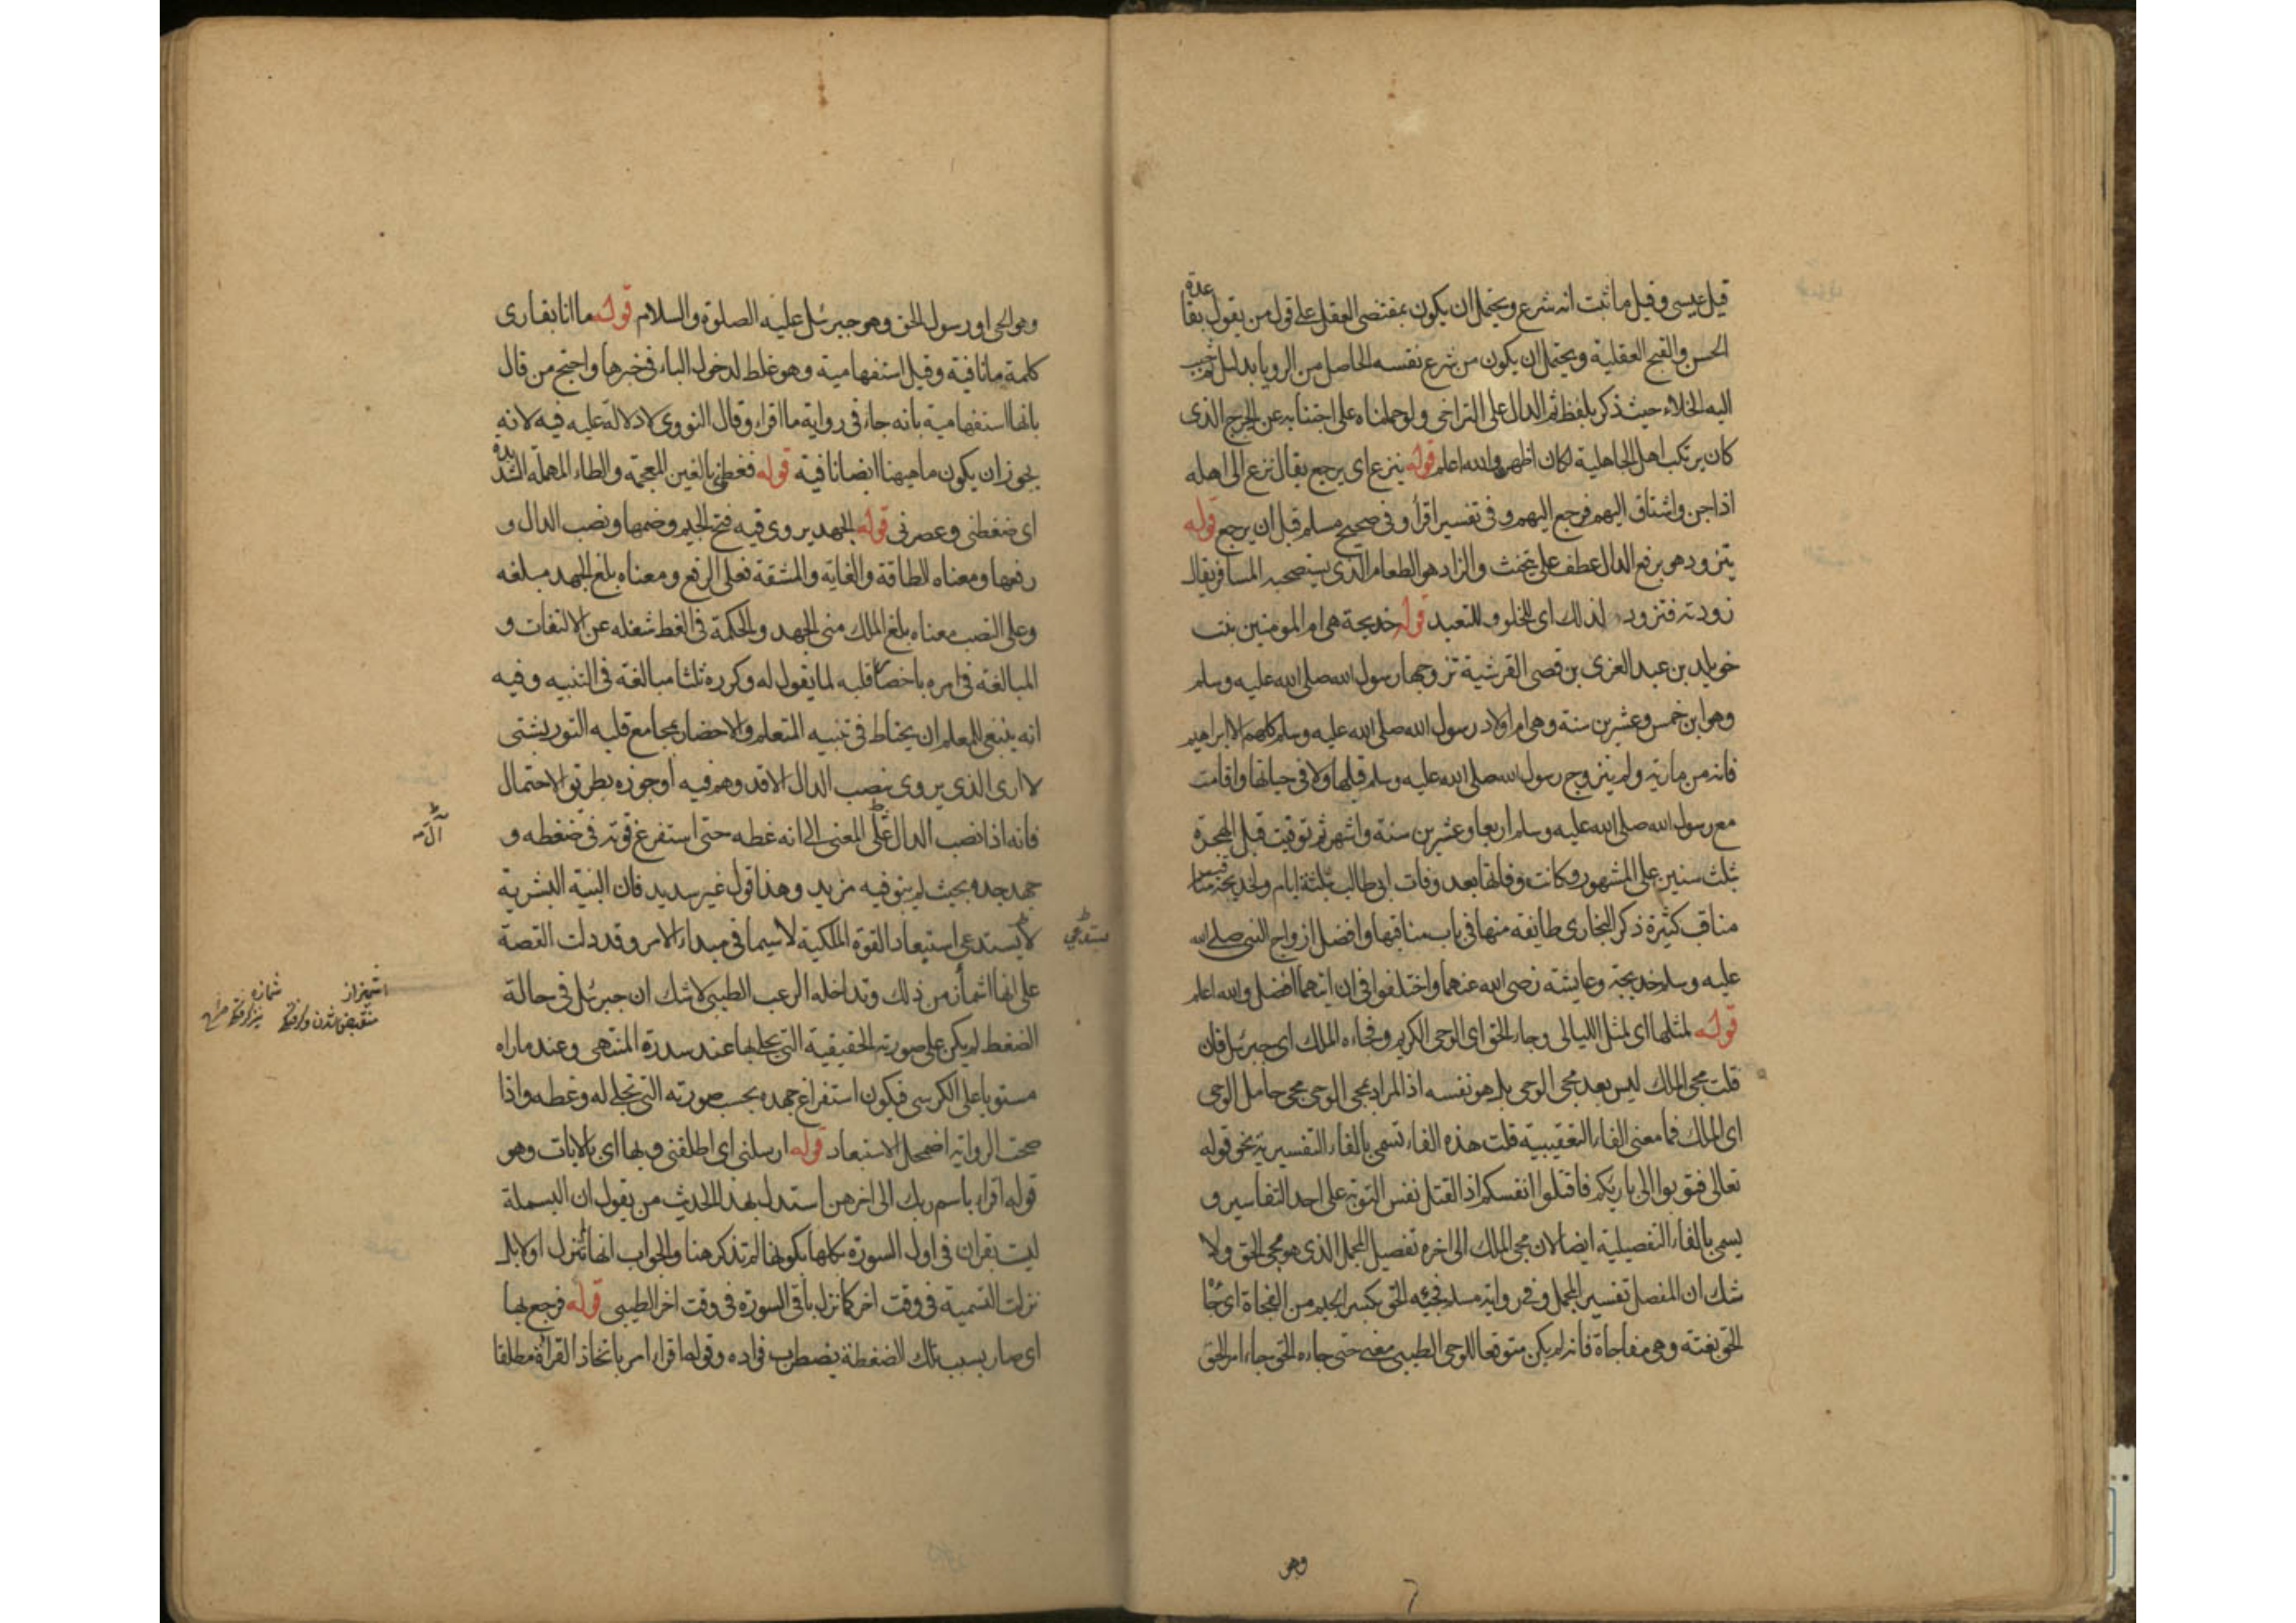 قيل عيسى وقيل ما ثبت انه شرع ويحتمل ان يكون بمقتضى العقل على قول من يقول بقاعدة
الحسن والقبح العقلية ويحتمل ان يكون من شرع نفسه الحاصل من الرويا بدليل ثم حبب
اليه الخلاء حيث ذكر بلفظ ثم الدال على التراخى ولو حملناه على اجتنابه عن الحرج الذى
كان يرتكب اهل الجاهلية لكان اظهر والله اعلم قوله ينزع اى يرجع يقال نزع الى اهله
اذا حن واشتاق اليهم فرجع اليهم وفى تفسير اقرأ وفى صحيح مسلم قبل ان يرجع قوله
يتزود هو برفع الدال عطف على يتحنث والزاد هو الطعام الذى يستصحبه المسافر يقال
زودته فتزود لذلك اى للخلو والتعبد قوله خديجة هى ام المومنين بنت
خويلد بن عبد العزى بن قصى القرشية تزوجها رسول الله صلى الله عليه وسلم
وهو ابن خمس وعشرين سنة وهى ام اولاد رسول الله صلى الله عليه وسلم كلهم الا ابراهيم
فانه من مارية ولم يتزوج رسول الله صلى الله عليه وسلم قبلها ولا فى حياتها واقامت
مع رسول الله صلى الله عليه وسلم اربعا وعشرين سنة واشهر ثم توفيت قبل الهجرة
بثلث سنين على المشهور وكانت وفاتها بعد وفات ابى طالب بثلثة ايام ولخديجة
مناقب كثيرة ذكر البخارى طايفة منها فى باب مناقبها وافضل ازواج النبى صلى الله
عليه وسلم خديجة وعايشة رضى الله عنهما واختلفوا فى ان ايتهما افضل والله اعلم
قوله لمثلها اى لمثل الليالى وجاء الحق اى الوحى الكريم وفجاءه الملك اى جبرئل فان
قلت مجى الملك ليس بعد مجى الوحى بل هو نفسه اذ المراد بمجى الوحى مجى حامل الوحى
اى الملك فما معنى الفاء التعقيبية قلت هذه الفاء تسمى بالفاء التفسيرية نحو قوله
تعالى فتوبوا الى باريكم فاقتلوا انفسكم اذ القتل نفس التوبة على احد التفاسير و
يسمى بالفاء التفصيلية ايضا لان مجى الملك الى اخره تفصيل للمجمل الذى هو مجى الحق ولا
شك ان المفصل تفسير المجمل وفى رواية مسلم فجئه الحق بكسر الجيم من الفجاة اى جاء
الحق بغتة وهى مفاجأة فانه لم يكن متوقعا للوحى الطيبى معنى حتى جاءه الحق جاء امر الحق
وهو
وهو الحى او رسول الحق وهو جبرئل عليه الصلوة والسلام قوله ما انا بقارى
كلمة ما نافية وقيل استفهامية وهو غلط لدخول الباء فى خبرها واحتج من قال
بانها استفهامية بانه جاء فى رواية ما اقراء وقال النووى لا دلالة عليه فيه لانه
يجوز ان يكون ما هيهنا ايضا نافية قوله فغطنى بالغين المعجمة والطاء المهملة المشددة
اى ضغطنى وعصرنى قوله الجهد يروى فيه فتح الجيم وضمها ونصب الدال و
رفعها ومعناه الطاقة والغاية والمشقة فعلى الرفع ومعناه بلغ الجهد مبلغه
وعلى النصب معناه بلغ الملك منى الجهد والحكمة فى الغط شغله عن الالتفات و
المبالغة فى امره باحضار قلبه لما يقول له وكرره ثلثا مبالغة فى التنبيه وفيه
انه ينبغى للمعلم ان يحتاط فى تنبيه المتعلم والاحضار بمجامع قلبه التوربشتى
لا ارى الذى يروى بنصب الدال الا قد وهم فيه او جوزه بطريق الاحتمال
فانه اذا نصب الدال على المعنى الى انه غطه حتى استفرغ قوته فى ضغطه و
جهد جده بحيث لم يبق فيه مزيد وهذا قول غير سديد فان البنية البشرية
لا يستدعى استيعاد القوة الملكية لا سيما فى مبداء الامر وقد دلت القصة
على انها اشمأز من ذلك وتداخله الرعب الطيبى لا شك ان جبرئل فى حالة
الضغط لم يكن على صورته الحقيقية التى تجلى بها عند سدرة المنتهى وعند ما راه
مستويا على الكرسى فيكون استفراغ جهده بحسب صورته التى تجلى له وغطه واذا
صحت الرواية اضمحل الاستبعاد قوله ارسلنى اى اطلقنى وبها اى بالايات وهو
قوله اقراء باسم ربك الى اخرهن استدل بهذا الحديث من يقول ان البسملة
ليست بقران فى اول السورة كلها بكونها لم تذكر هنا والجواب انها لم تنزل اولا بل
نزلت التسمية فى وقت اخر كما نزل باقى السورة فى وقت اخر الطيبى قوله فرجع بها
اى صار بسبب تلك الضغطة يضطرب فواده وقوله اقراء امر باتخاذ القراءة مطلقا
يستدعي
اشمئزاز